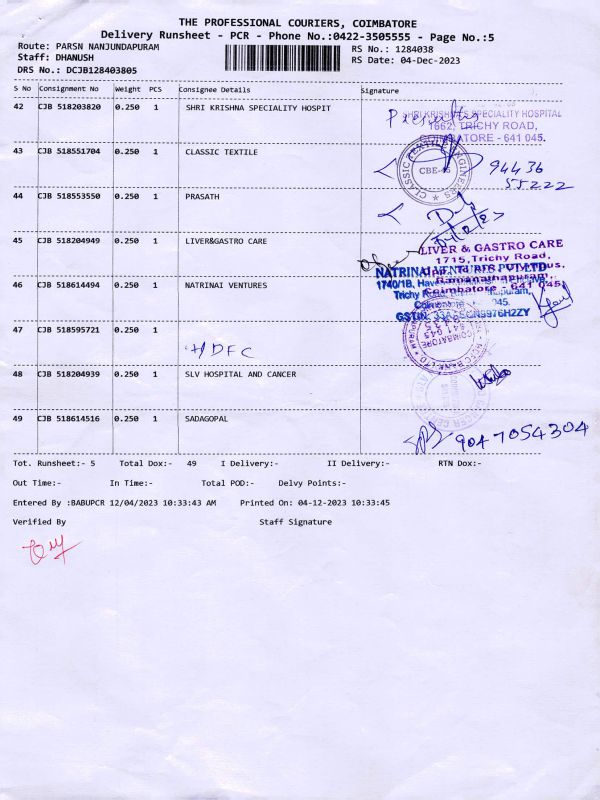 THE PROFESSIONAL COURIERS, COIMBATORE
Delivery Runsheet - PCR - Phone No.:0422-3505555 - Page No.:5
Route: PARSN NANJUNDAPURAM
RS No.: 1284038
Staff: DHANUSH
RS Date: 04-Dec-2023
DRS No.: DCJB128403805
S No Consignment No Weight PCS Consignee Details Signature
42 CJB 518203820 0.250 1 SHRI KRISHNA SPECIALITY HOSPIT
SHRI KRISHNA SPECIALITY HOSPITAL
1662, TRICHY ROAD,
COIMBATORE - 641 045.
43 CJB 518551704 0.250 1 CLASSIC TEXTILE
CLASSIC TEXTILE ENGINEERS
CBE-45
94436
55222
44 CJB 518553550 0.250 1 PRASATH
45 CJB 518204949 0.250 1 LIVER&GASTRO CARE
LIVER & GASTRO CARE
1715, Trichy Road,
Ramanathapuram,
Coimbatore - 641 045.
46 CJB 518614494 0.250 1 NATRINAI VENTURES
NATRINAI VENTURES PVT LTD
1740/1B,
Trichy Road,
Coimbatore 045.
GSTIN:
47 CJB 518595721 0.250 1
HDFC
COIMBATORE
48 CJB 518204939 0.250 1 SLV HOSPITAL AND CANCER
49 CJB 518614516 0.250 1 SADAGOPAL
9047054304
Tot. Runsheet:- 5 Total Dox:- 49 I Delivery:- II Delivery:- RTN Dox:-
Out Time:- In Time:- Total POD:- Delvy Points:-
Entered By :BABUPCR 12/04/2023 10:33:43 AM Printed On: 04-12-2023 10:33:45
Verified By Staff Signature